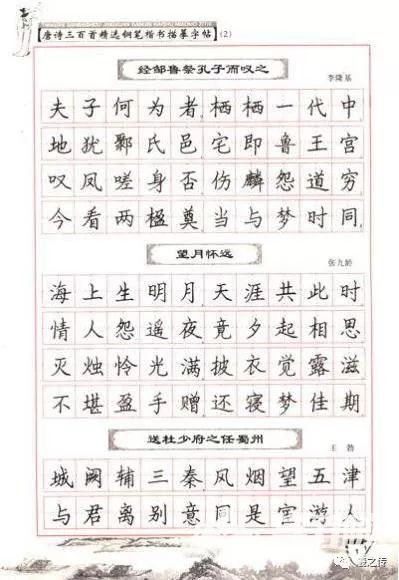 【唐诗三百首精选钢笔楷书描摹字帖】(2)
经邹鲁祭孔子而叹之
李隆基
夫子何为者栖栖一代中
地犹鄹氏邑宅即鲁王宫
叹凤嗟身否伤麟怨道穷
今看两楹奠当与梦时同
望月怀远
张九龄
海上生明月天涯共此时
情人怨遥夜竟夕起相思
灭烛怜光满披衣觉露滋
不堪盈手赠还寝梦佳期
送杜少府之任蜀州
王勃
城阙辅三秦风烟望五津
与君离别意同是宦游人